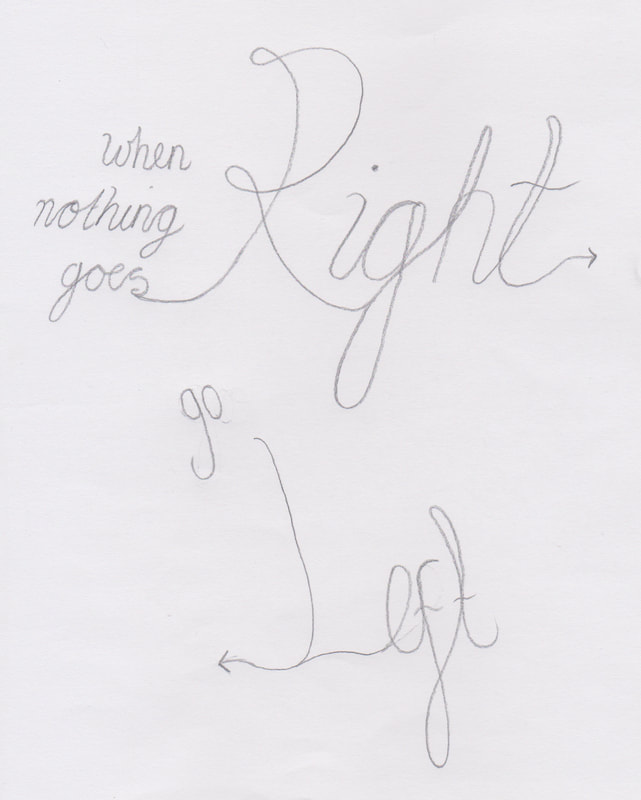 when
nothing
goes Right
go
Left